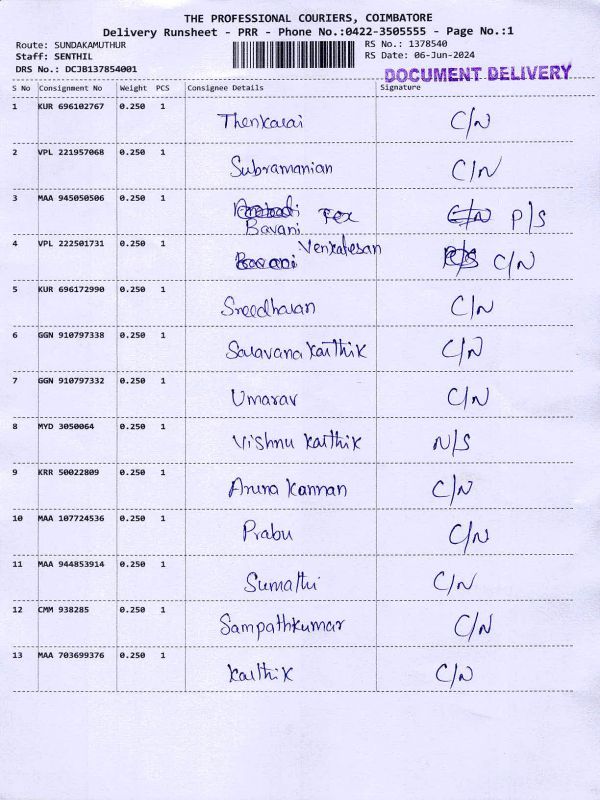 THE PROFESSIONAL COURIERS, COIMBATORE
Delivery Runsheet - PRR - Phone No.:0422-3505555 - Page No.:1
Route: SUNDAKAMUTHUR RS No.: 1378540
Staff: SENTHIL RS Date: 06-Jun-2024
DRS No.: DCJB137854001 DOCUMENT DELIVERY
S No Consignment No Weight PCS Consignee Details Signature
1 KUR 696102767 0.250 1 Thenkarai C/N
2 VPL 221957068 0.250 1 Subramanian C/N
3 MAA 945050506 0.250 1 Tex C/N P/S
Bavani
4 VPL 222501731 0.250 1 Bavani Venkatesan C/N
5 KUR 696172990 0.250 1 Sreedharan C/N
6 GGN 910797338 0.250 1 Saravana Karthik C/N
7 GGN 910797332 0.250 1 Umarav C/N
8 MYD 3050064 0.250 1 Vishnu Karthik N/S
9 KRR 50022809 0.250 1 Aruna Kannan C/N
10 MAA 107724536 0.250 1 Prabu C/N
11 MAA 944853914 0.250 1 Sumathi C/N
12 CMM 938285 0.250 1 Sampathkumar C/N
13 MAA 703699376 0.250 1 Karthik C/N